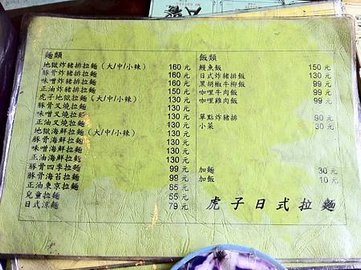 麵類
地獄炸豬排拉麵(大/中/小辣) 160 元
豚骨炸豬排拉麵 160 元
味噌炸豬排拉麵 160 元
正油炸豬排拉麵 150 元
虎子地獄拉麵(大/中/小辣) 130 元
豚骨叉燒拉麵 130 元
味噌叉燒拉麵 130 元
正油叉燒拉麵 130 元
地獄海鮮拉麵(大/中/小辣) 130 元
豚骨海鮮拉麵 130 元
味噌海鮮拉麵 130 元
正油海鮮拉麵 130 元
豚骨四季拉麵 99 元
豚骨海苔拉麵 99 元
正油東京拉麵 85 元
兒童拉麵 55 元
日式涼麵 79 元
飯類
鰻魚飯 150 元
日式炸豬排飯 130 元
黑胡椒牛柳飯 99 元
咖哩牛肉飯 99 元
咖哩雞肉飯 99 元
單點炸豬排 90 元
小菜 30 元
加麵 30 元
加飯 10 元
虎子日式拉麵